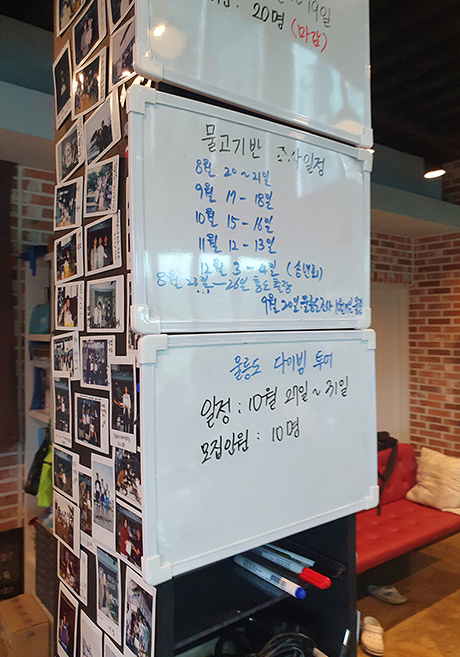 19일
20명 (마감)
물고기반 조사일정
8월 20~21일
9월 17-18일
10월 15-16일
11월 12-13일
12월 3-4일 (송년회)
8월 23 ~ 26일
9월 20일 울릉도조사
울릉도 다이빙 투어
일정 : 10월 27일~31일
모집인원 : 10명